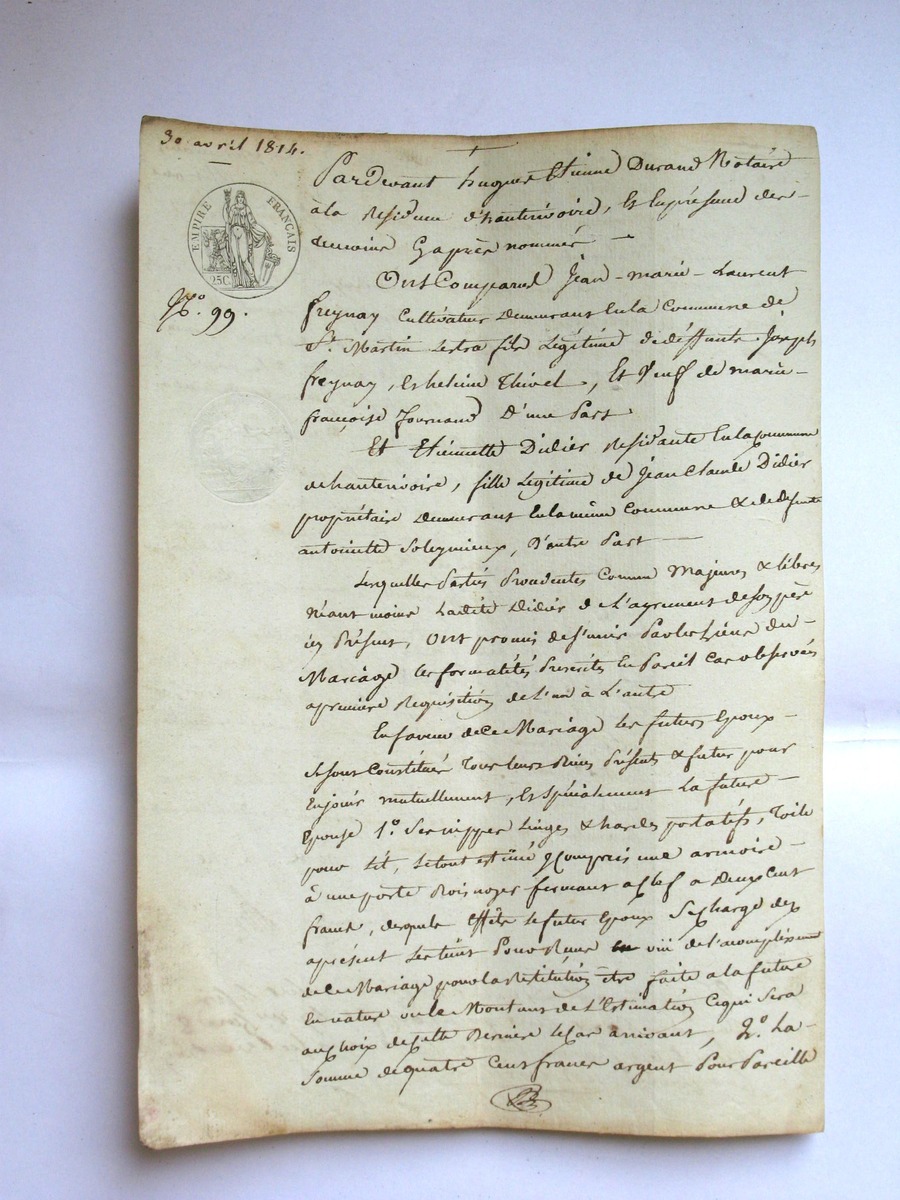 30 avril 1814.
EMPIRE FRANÇAIS
25C.
N.° 99.
Pardevant hugues Etienne Durand Notaire
à la Residence d'hauterivoire, Et En présence des
temoins Cy après nommés —
Ont Comparu Jean-marie-Laurent
freynay Cultivateur Demeurant En la Commune de
St. Martin Lestra fils Légitime de deffunts Joseph
freynay, Et helene Thivel, Et Veuf de marie-
françoise Journand D'une Part
Et Etiennette Didier Residante En la Commune
de hauterivoire, fille Légitime de Jean Claude Didier
propriétaire Demeurant En la même Commune & de defunte
antoinette Soleymieux, D'autre Part —
Lesquelles Parties Procedantes Comme Majeures & libres
Néant moins Ladite Didier de L'agrement de son père
icy Présent, Ont promis de S'unir Par les Liens du
Mariage les formalités Prescrites En Pareil Cas observées
a premiere Requisition de L'un à L'autre
En faveur de Ce Mariage les futurs Epoux
Se sont Constitués Tous leurs Biens Présents & futur pour
En jouir mutuellement, Et Spécialement La future
Epouse 1.° Ses nippes Linges & hardes portatifs, Toile
pour Lit, le tout estimé y Compris une armoire
à une porte Bois noyer fermant a Clef a Deux Cent
francs, desquels Effets le futur Epoux Se charge dez
aprésent Les tient Pour Reçus au vüi de l'acomplissement
de Ce Mariage pour la Restitution être faite a la future
En nature ou le Montant de L'Estimation Ce qui Sera
au Choix de Cette Derniere le Cas arrivant, 2.° La
Somme de quatre Cent francs argent Pour Pareille